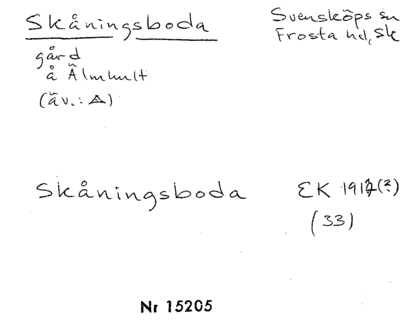 Skåningsboda
Svensköps sn
Frosta hd, Sk
gård
å Älmhult
(äv.: A)
Skåningsboda
EK 1912(?)
(33)
Nr 15205